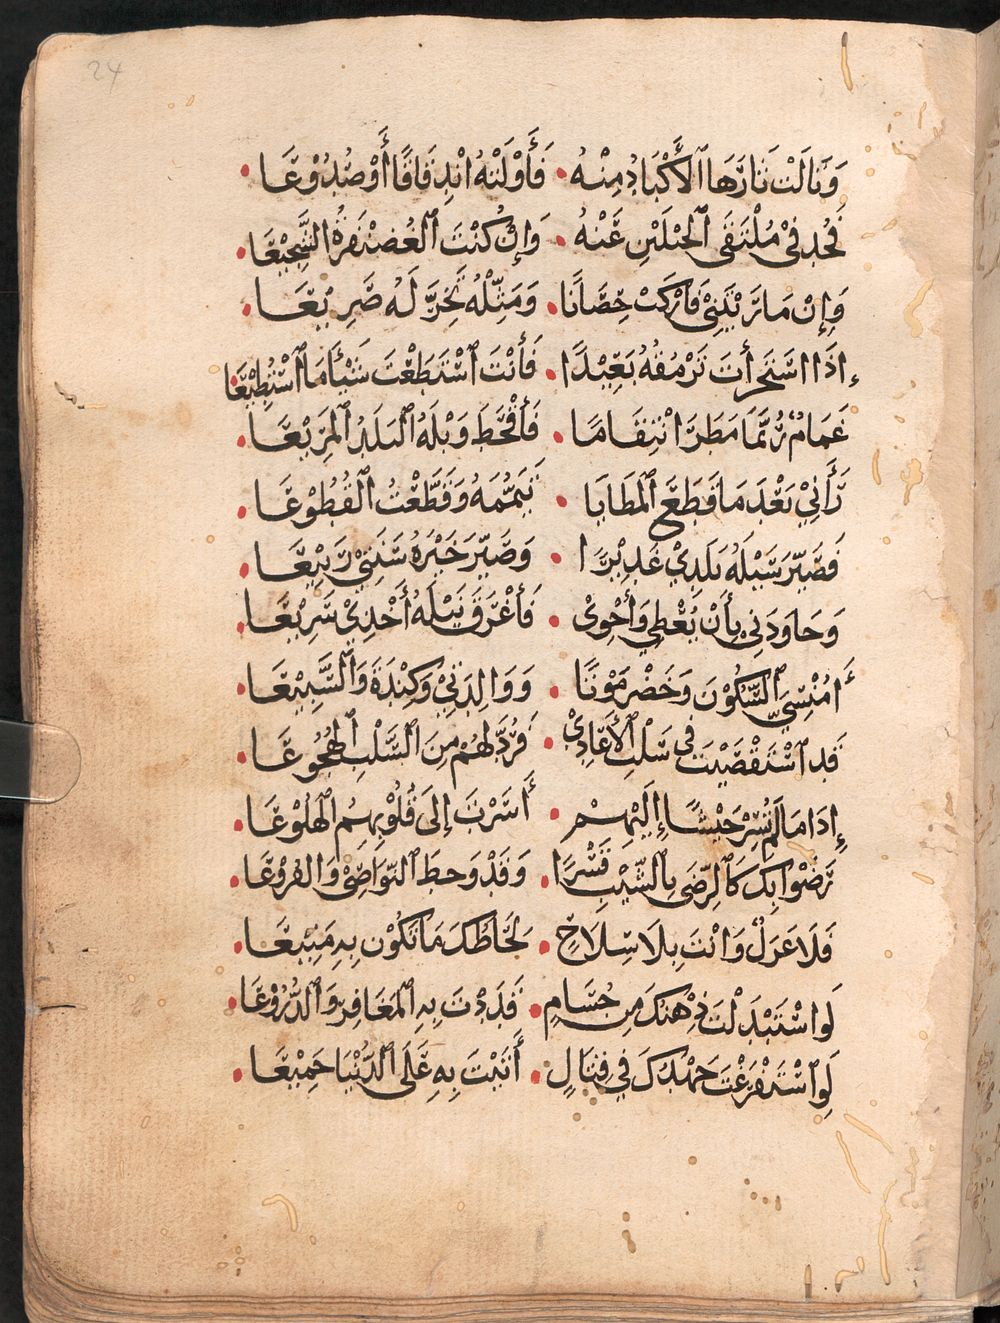 24
وَنَالَتْ ثَارَهَا الْأَكْبَادُ مِنْهُ فَأَوْلَتْهُ انْدِقَاقًا أَوْ صُدُوْعَا
فَحُدْ فِيْ مُلْتَقَى الْخَيْلَيْنِ عَنْهُ وَإِنْ كُنْتَ الْغُضَنْفَرَةُ الشَّجِيْعَا
وَإِنْ مَارَيْتَنِيْ فَارْكَبْ حِصَانًا وَمَثِّلْهُ تَخِرَّ لَهُ صَرِيْعَا
إِذَا اسْتَجْرَأْتَ تَرْمُقُهُ بَعِيْدًا فَأَنْتَ اسْتَطَعْتَ شَيْأً مَا اسْتُطِيْعَا
غَمَامٌ رُبَّمَا مَطَرَ انْتِقَامًا فَأَقْحَطَ وَبْلُهُ الْبَلَدَ الْمَرِيْعَا
رَأَنِيْ بَعْدَ مَا قَطَعَ الْمَطَايَا تَيَمُّمَهُ وَقَطَّعْتُ الْقُطُوْعَا
فَصَيَّرَ سَيْلُهُ بَلَدِيْ غَدِيْرًا وَصَيَّرَ خَيْرُهُ سَنَتِيْ رَبِيْعَا
وَجَاوَدَنِيْ بِأَنْ يُعْطِي وَأَحْوِيْ فَأَغْرَقَ نَيْلُهُ أَخْذِيْ سَرِيْعَا
أَمُنْسِيَّ السَّكُوْنَ وَحَضْرَمَوْتًا وَوَالِدَتِيْ وَكِنْدَةَ وَالسَّبِيْعَا
قَدِ اسْتَقْصَيْتَ فِي سَلْبِ الْأَعَادِيْ فَرُدَّ لَهُمْ مِنَ السَّلْبِ الْهُجُوعَا
إِذَا مَا لَمْ تُسِرْ جَيْشًا إِلَيْهِمْ أَسَرْتَ إِلَى قُلُوْبِهِمُ الْهُلُوْعَا
رَضُوْا بِكَ كَالرِّضَى بِالشَّيْبِ قَسْرًا وَقَدْ وَخَطَ النَّوَاصِيْ وَالْفُرُوْعَا
فَلَا عَزَلٌ وَانْتَ بِلَا سِلَاحٍ لَحَاظُكَ مَا تَكُوْن بِهِ مَنِيْعَا
لَوِ اسْتَبْدَلْتَ ذِهْنَكَ مِنْ حُسَامٍ قَدَدْتَ بِهِ الْمَغَافِرَ وَالدُّرُوْعَا
لَوِ اسْتَفْرَغْتَ جَهْدَكَ فِي قِتَالٍ أَتَيْتَ بِهِ عَلَى الدُّنْيَا جَمِيْعَا